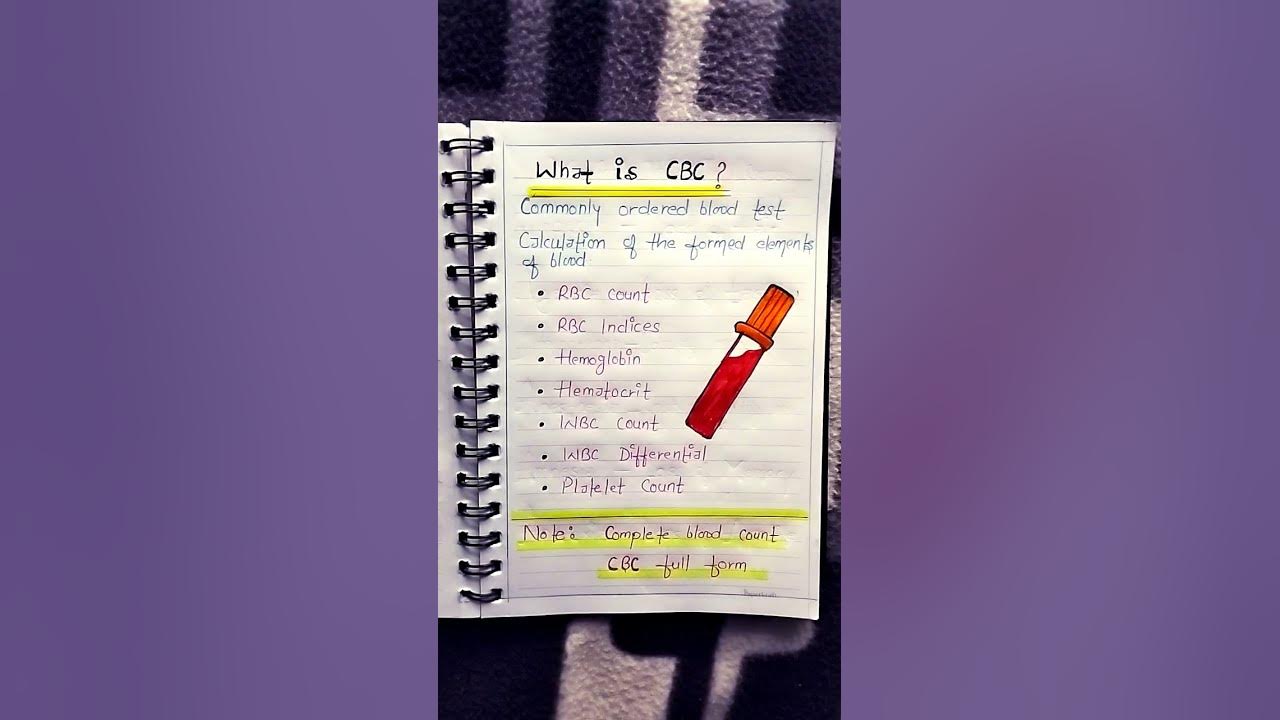 What is CBC?
Commonly ordered blood test
Calculation of the formed elements
of blood
• RBC count
• RBC Indices
• Hemoglobin
• Hematocrit
• WBC count
• WBC Differential
• Platelet Count
Note: Complete blood count
CBC full form